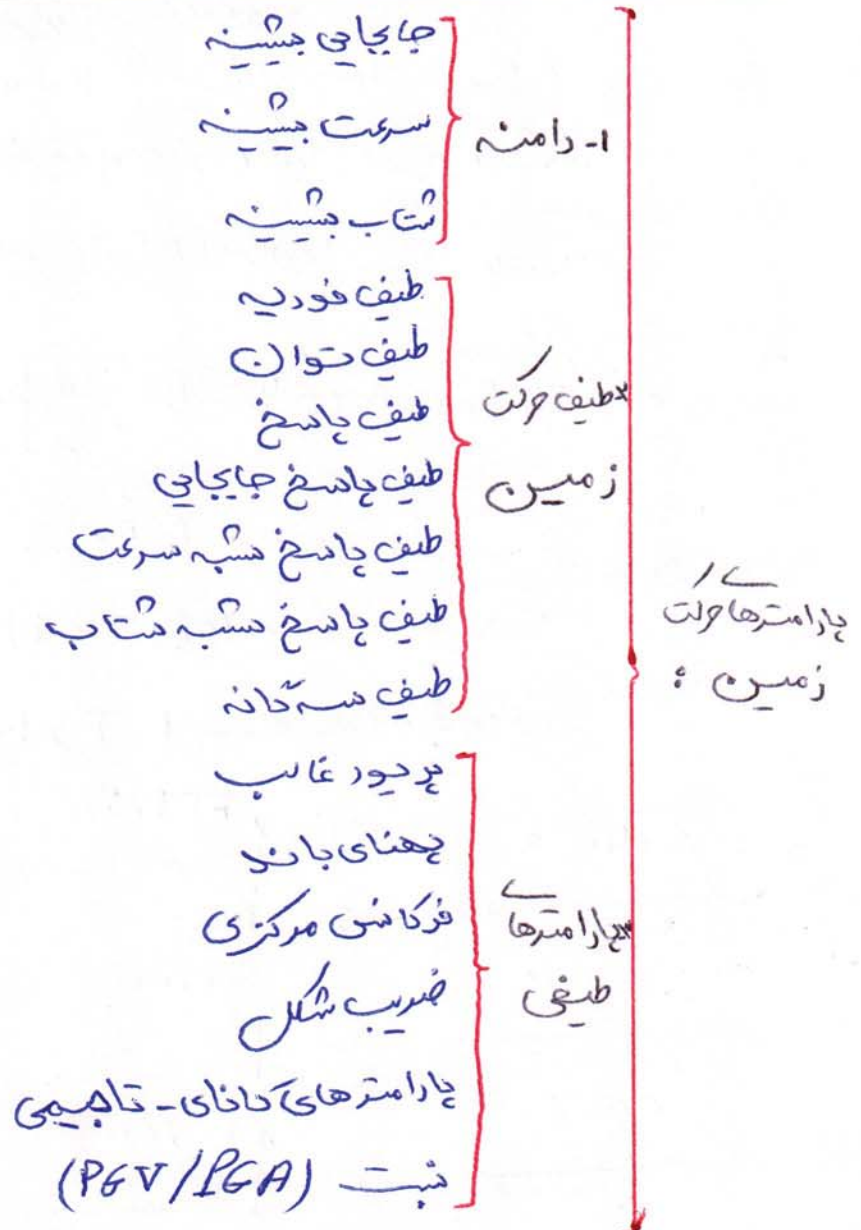 پارامترهای حرکت
زمین :
۱- دامنه
جابجایی بیشینه
سرعت بیشینه
شتاب بیشینه
۲- طیف حرکت
زمین
طیف فوریه
طیف توان
طیف پاسخ
طیف پاسخ جابجایی
طیف پاسخ شبه سرعت
طیف پاسخ شبه شتاب
طیف سه گانه
۳- پارامترهای
طیفی
پریود غالب
پهنای باند
فرکانس مرکزی
ضریب شکل
پارامترهای کانای - تاجیمی
نسبت (PGV/PGA)